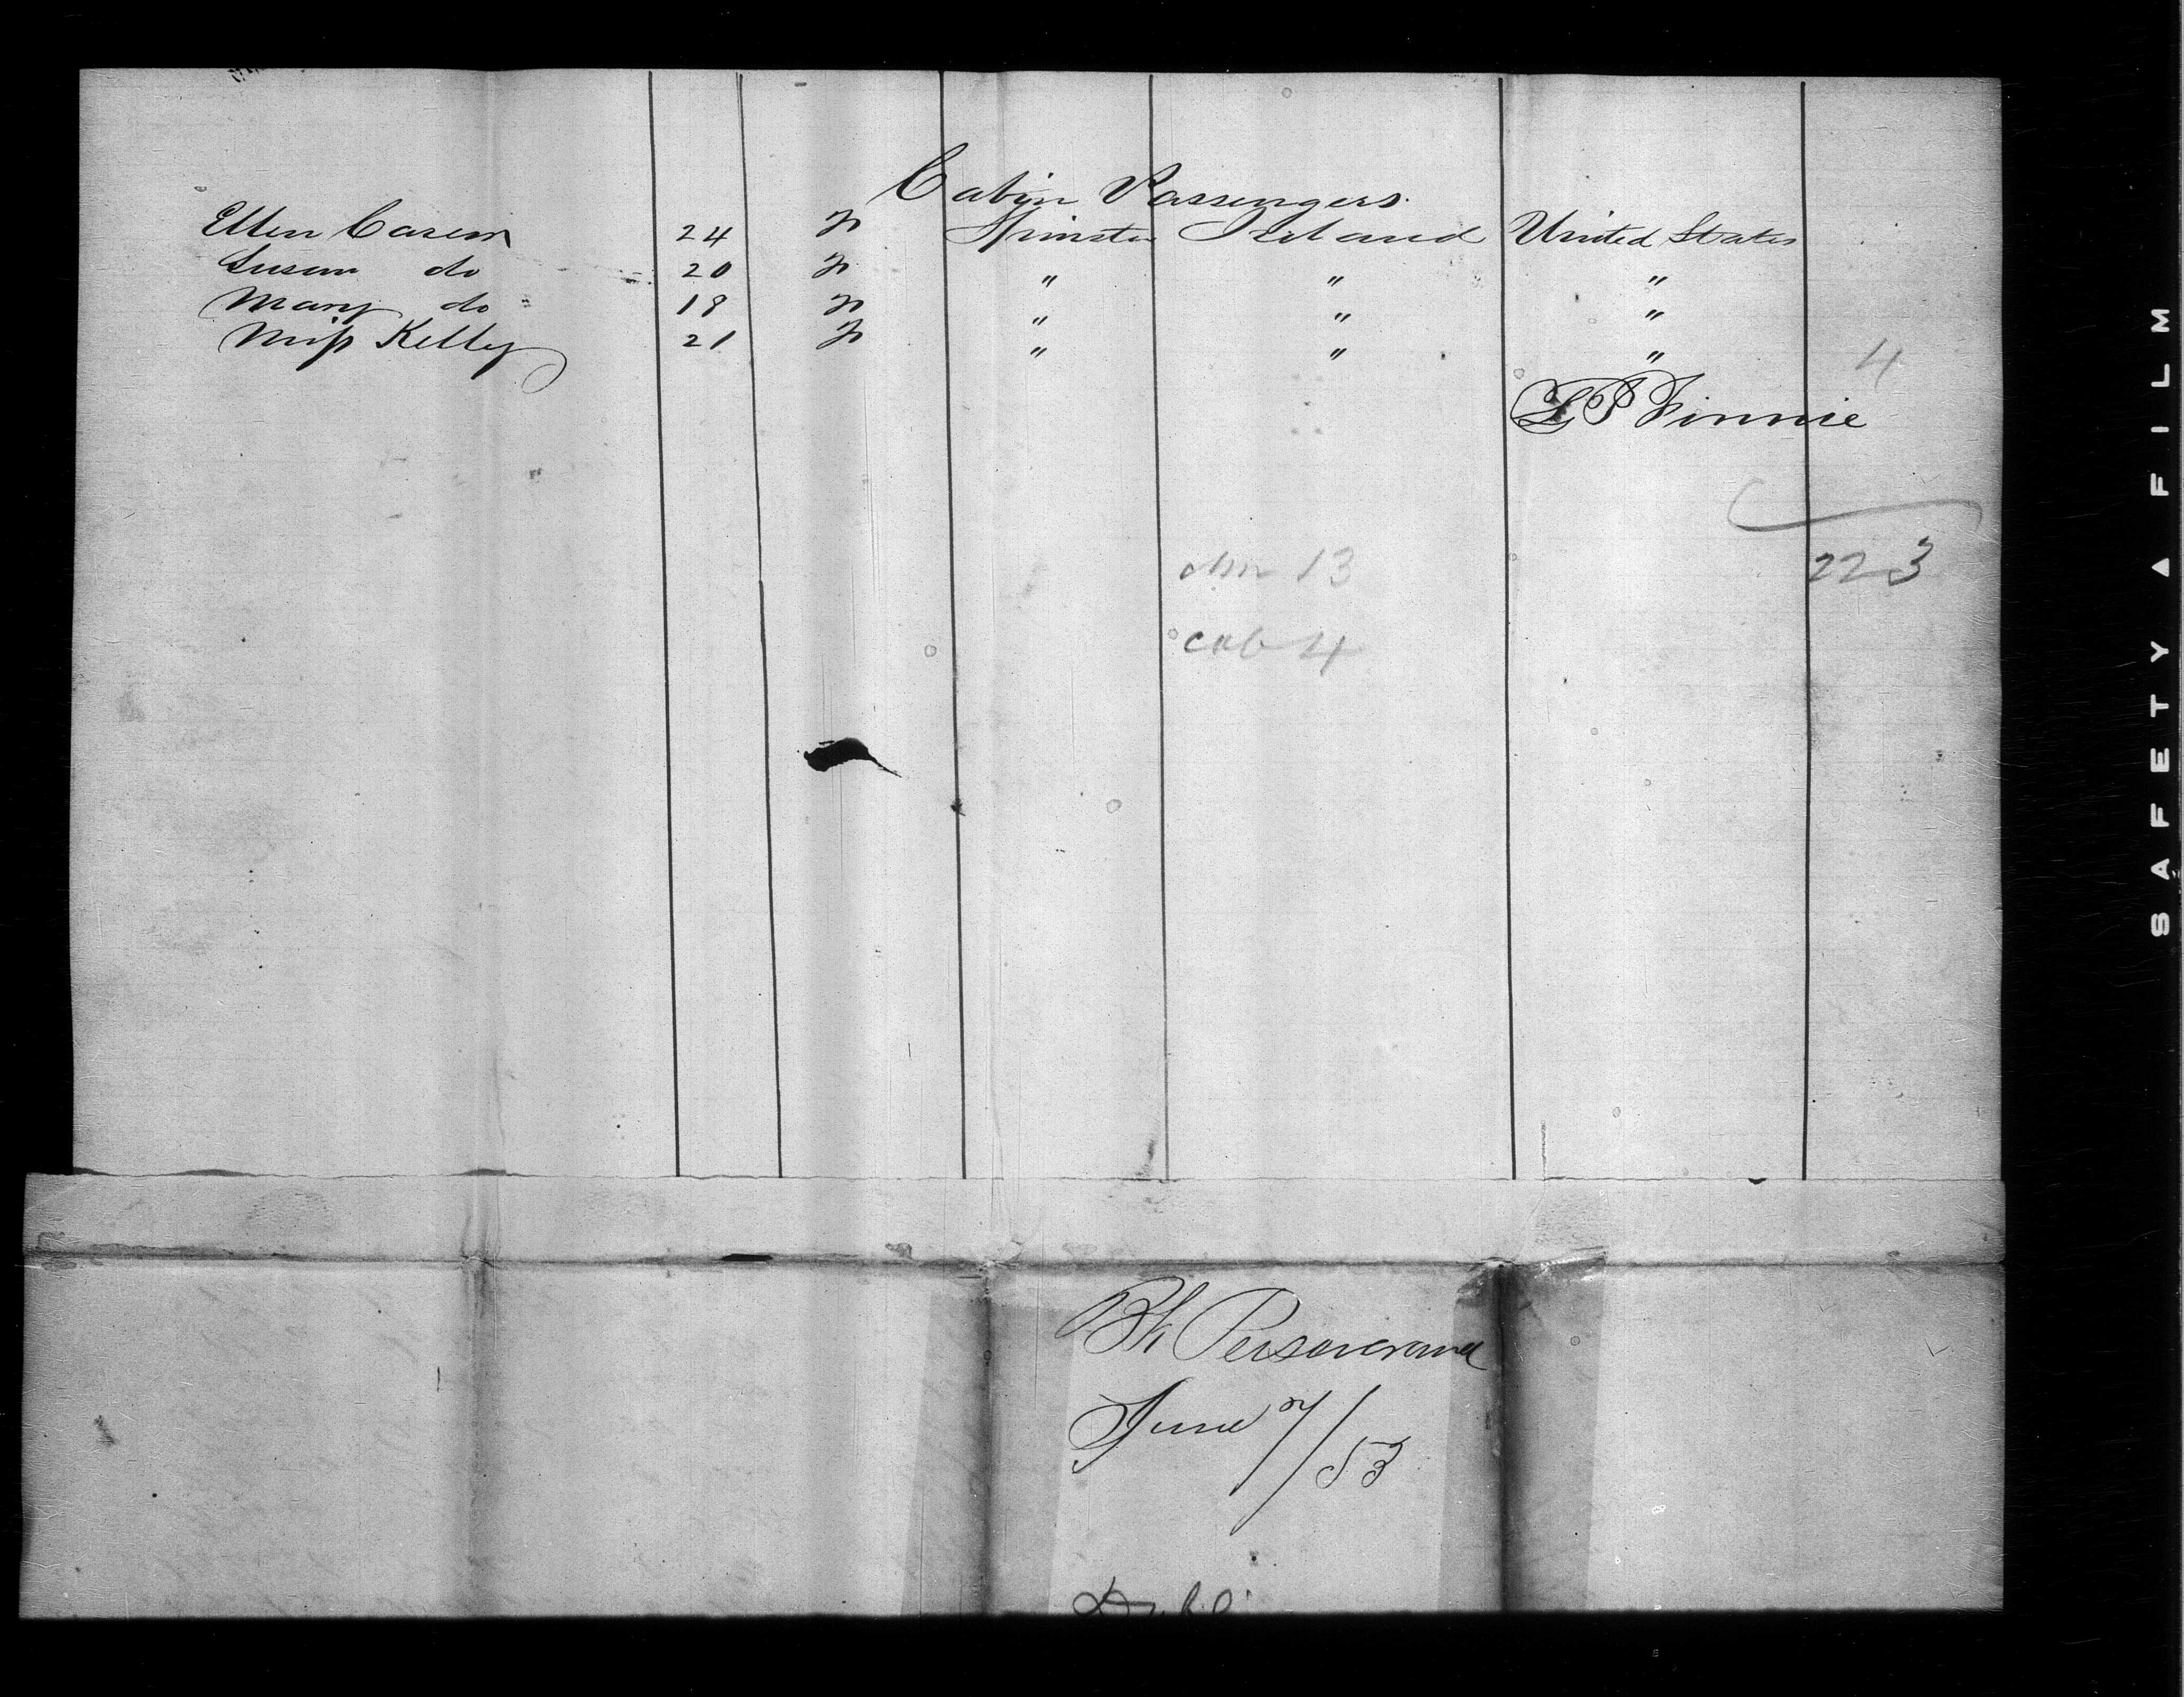 Cabin Passengers.
Ellen Carson 24 F Spinster Ireland United States
Susan do 20 F " " "
Mary do 18 F " " "
Miss Kelly 21 F " " " 4
L P Finnie
223
13
cab 4
Bk Perseverance
June 7/53
SAFETY ▲ FILM